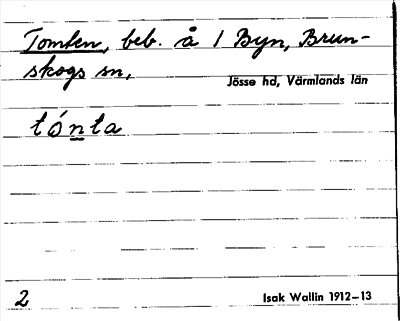 Tomten, beb. å 1 Byn, Brun-
skogs sn,
Jösse hd, Värmlands län
tónta
2
Isak Wallin 1912–13